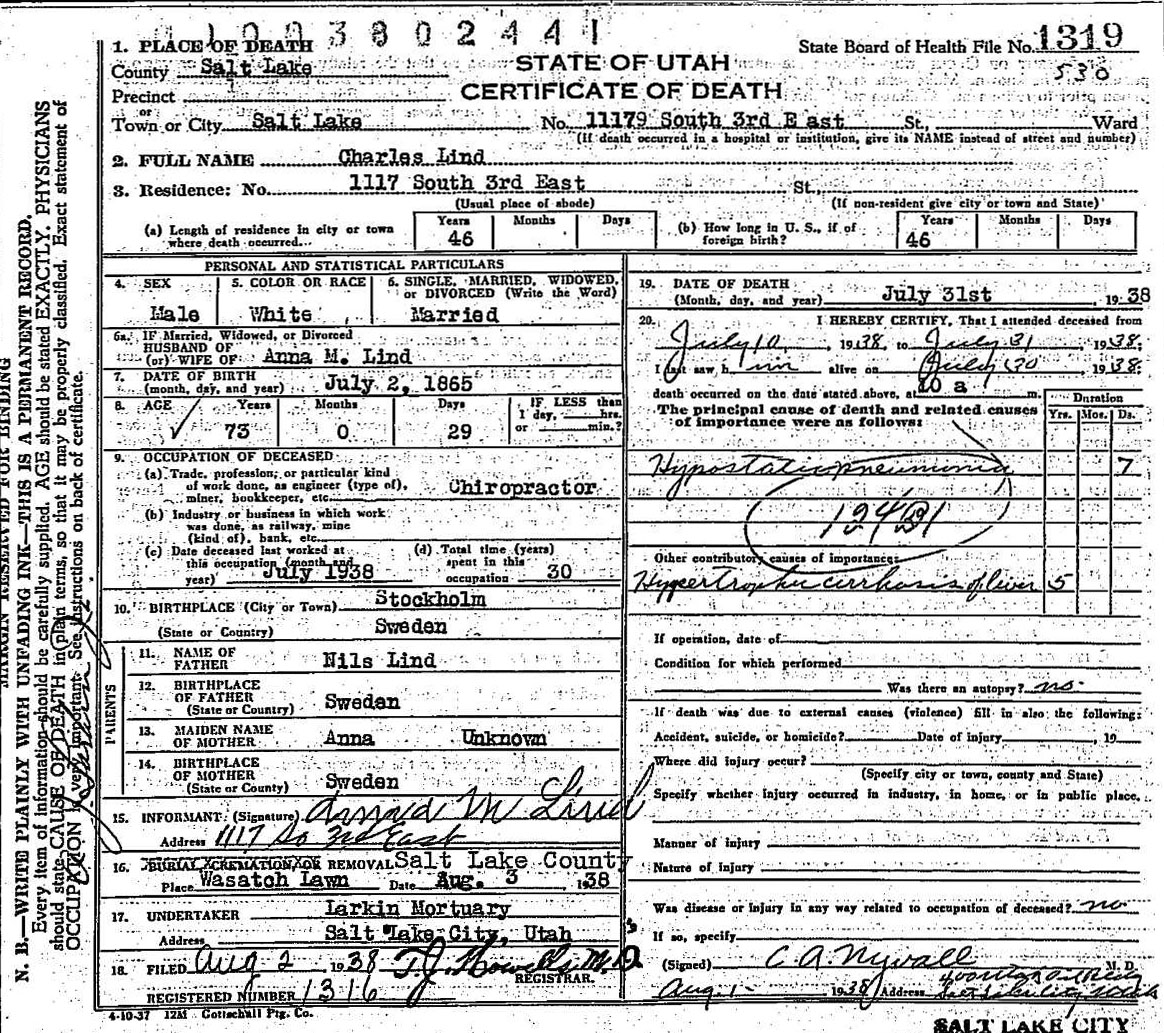 1003802441
State Board of Health File No. 1319
530
STATE OF UTAH
CERTIFICATE OF DEATH
1. PLACE OF DEATH
County Salt Lake
Precinct
or
Town or City Salt Lake No. 11179 South 3rd East St., Ward
(If death occurred in a hospital or institution, give its NAME instead of street and number)
2. FULL NAME Charles Lind
3. Residence: No. 1117 South 3rd East St.
(Usual place of abode) (If non-resident give city or town and State)
(a) Length of residence in city or town where death occurred... Years 46 Months Days
(b) How long in U. S., if of foreign birth? Years 46 Months Days
PERSONAL AND STATISTICAL PARTICULARS
4. SEX Male
5. COLOR OR RACE White
6. SINGLE, MARRIED, WIDOWED, or DIVORCED (Write the Word) Married
6a. IF Married, Widowed, or Divorced
HUSBAND OF
(or) WIFE OF Anna M. Lind
7. DATE OF BIRTH
(month, day, and year) July 2, 1865
8. AGE Years 73 Months 0 Days 29 IF LESS than 1 day, hrs. or min.?
9. OCCUPATION OF DECEASED
(a) Trade, profession, or particular kind
of work done, as engineer (type of),
miner, bookkeeper, etc. Chiropractor
(b) Industry or business in which work
was done, as railway, mine
(kind of), bank, etc.
(c) Date deceased last worked at
this occupation (month and
year) July 1938
(d) Total time (years)
spent in this
occupation 30
10. BIRTHPLACE (City or Town) Stockholm
(State or Country) Sweden
PARENTS
11. NAME OF
FATHER Nils Lind
12. BIRTHPLACE
OF FATHER
(State or Country) Sweden
13. MAIDEN NAME
OF MOTHER Anna Unknown
14. BIRTHPLACE
OF MOTHER
(State or Country) Sweden
15. INFORMANT: (Signature) Anna M Lind
Address 1117 So 3rd East
16. BURIAL, CREMATION, OR REMOVAL Salt Lake County
Place Wasatch Lawn Date Aug. 3, 1938
17. UNDERTAKER Larkin Mortuary
Address Salt Lake City, Utah
18. FILED Aug 2 1938 T.J. Howells M.D.
REGISTRAR.
REGISTERED NUMBER 1316
4-10-37 12M Gottschall Ptg. Co.
19. DATE OF DEATH
(Month, day, and year) July 31st, 1938
20. I HEREBY CERTIFY, That I attended deceased from
July 10, 1938, to July 31, 1938;
I last saw him alive on July 30, 1938;
death occurred on the date stated above, at 10 a m.
The principal cause of death and related causes
of importance were as follows:
Duration
Yrs. Mos. Ds.
Hypostatic pneumonia 7
124
Other contributory causes of importance:
Hypertrophic cirrhosis of liver 5
If operation, date of
Condition for which performed
Was there an autopsy? no
If death was due to external causes (violence) fill in also the following:
Accident, suicide, or homicide? Date of injury, 19
Where did injury occur?
(Specify city or town, county and State)
Specify whether injury occurred in industry, in home, or in public place.
Manner of injury
Nature of injury
Was disease or injury in any way related to occupation of deceased? no
If so, specify
(Signed) C. A. Nyvall M. D.
Aug. 1 1938 Address Salt Lake City, Utah
SALT LAKE CITY
MARGIN RESERVED FOR BINDING
N. B.—WRITE PLAINLY WITH UNFADING INK—THIS IS A PERMANENT RECORD.
Every item of information should be carefully supplied. AGE should be stated EXACTLY. PHYSICIANS
should state CAUSE OF DEATH in plain terms, so that it may be properly classified. Exact statement of
OCCUPATION is very important. See instructions on back of certificate.